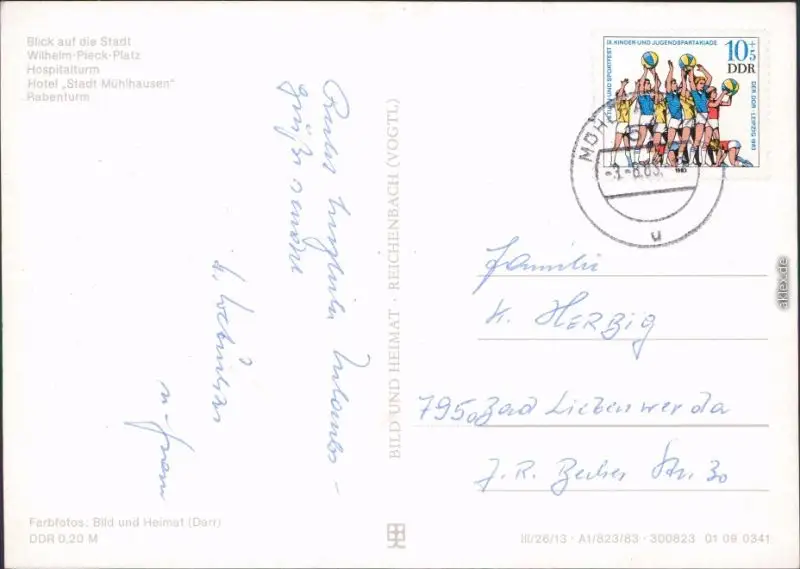 Blick auf die Stadt
Wilhelm-Pieck-Platz
Hospitalturm
Hotel „Stadt Mühlhausen"
Rabenturm
grüße sendet
u. Frau
Farbfotos: Bild und Heimat (Darr)
DDR 0,20 M
BILD UND HEIMAT · REICHENBACH (VOGTL)
IX. KINDER- UND JUGENDSPARTAKIADE
TURN- UND SPORTFEST
DER DDR · LEIPZIG 1983
10+5
DDR
1983
u
Familie
K. HERZIG
7950 Bad Liebenwerda
J. R. Becher Str. 30
III/26/13 · A1/823/83 · 300823 01 09 0341
aklex.de